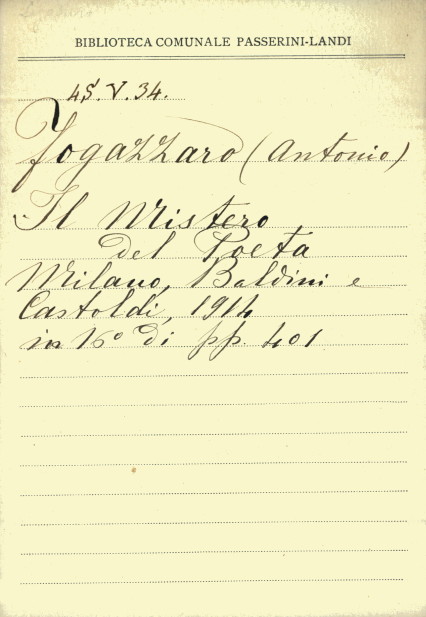 BIBLIOTECA COMUNALE PASSERINI-LANDI
45.V.34.
Fogazzaro (Antonio)
Il Mistero
del Poeta
Milano, Baldini e
Castoldi, 1914
in 16º di pp. 401